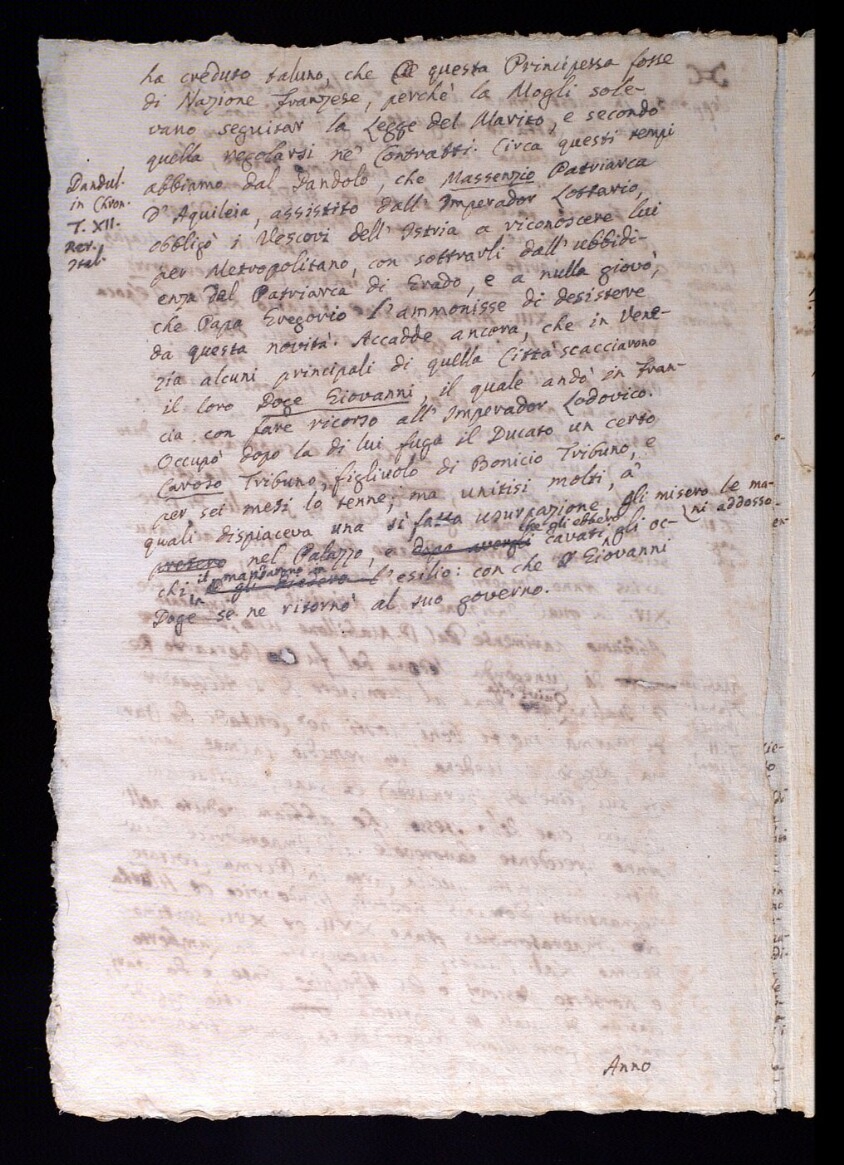 ha creduto taluno, che questa Principessa fosse
di Nazione Franzese, perchè la Mogli sole-
vano seguitar la Legge del Marito, e secondo
quella regolarsi ne' Contratti. Circa questi tempi
Dandul.
in Chron.
T. XII.
Rer.
Ital.
abbiamo dal Dandolo, che Massenzio Patriarca
d'Aquileia, assistito dall'Imperador Lottario,
obbligò i Vescovi dell'Istria a riconoscere lui
per Metropolitano, con sottrarli dall'ubbidi-
enza del Patriarca di Grado, e a nulla giovò,
che Papa Gregorio l'ammonisse di desistere
da questa novità. Accadde ancora, che in Vene-
zia alcuni principali di quella Città scacciarono
il loro Doge Giovanni, il quale andò in Fran-
cia con fare ricorso all'Imperador Lodovico.
Occupò dopo la di lui fuga il Ducato un certo
Caroso Tribuno, figliuolo di Bonicio Tribuno, e
per sei mesi lo tenne; ma unitisi molti, a'
quali dispiaceva una sì fatta usurpazione, gli misero le ma-
ni addosso
presero nel Palazzo, e dopo avergli che gli ebbero cavati gli oc-
chi, il mandarono in l'esilio: con che Giovanni
Doge se ne ritornò al suo governo.
Anno